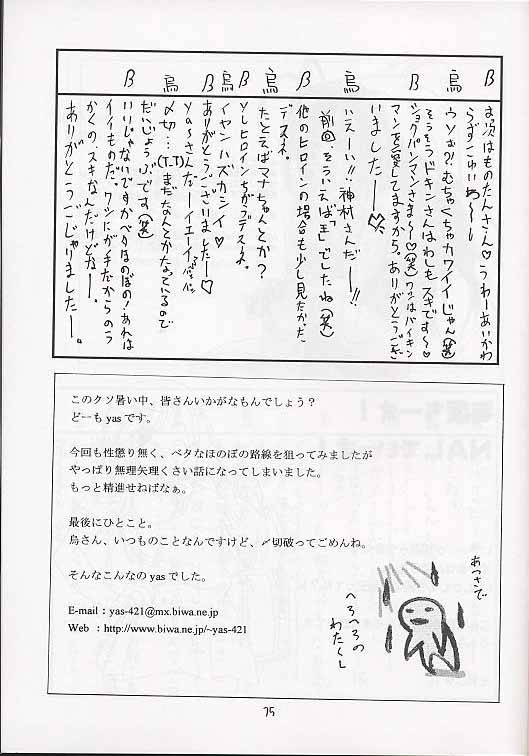 β
お次はものたんさん♡うわーあいかわ
らずごっついわぁ〜し
烏
ウソぉ?!むちゃくちゃカワイイじゃん(笑)
β
そうそうドキンさんはわしもスキです〜♡
ショクパンマンさま〜♡(笑)ワシはバイキン
マンを愛してますから。ありがとうござ
いました—♡
烏
いえーい!!神村さんだー!!
前回、そういえば「王」でしたね(笑)
β
他のヒロインの場合も少し見たかった
デスネ。
烏
たとえばマナちゃんとか?
β
ソレヒロインちがうデスネ。
烏
イヤンハズカシイ♡
β
ありがとうございました—♡
yaSさんだーイエーイパパパパパ
烏
〆切…(T.T)まだなんとかなっているので
だいじょうぶです(笑)
β
いいじゃないですかベタなほのぼの!あれは
イイものだ。ワシにがイ手だからのう
かくの、スキなんだけどなー。
ありがとうごじゃりました—。
このクソ暑い中、皆さんいかがなもんでしょう?
どーも yas です。
今回も性懲り無く、ベタなほのぼの路線を狙ってみましたが
やっぱり無理矢理くさい話になってしまいました。
もっと精進せねばなぁ。
最後にひとこと。
烏さん、いつものことなんですけど、〆切破ってごめんね。
そんなこんなの yas でした。
E-mail : yas-421@mx.biwa.ne.jp
Web : http://www.biwa.ne.jp/~yas-421
あつさで
へろへろの
わたくし
75